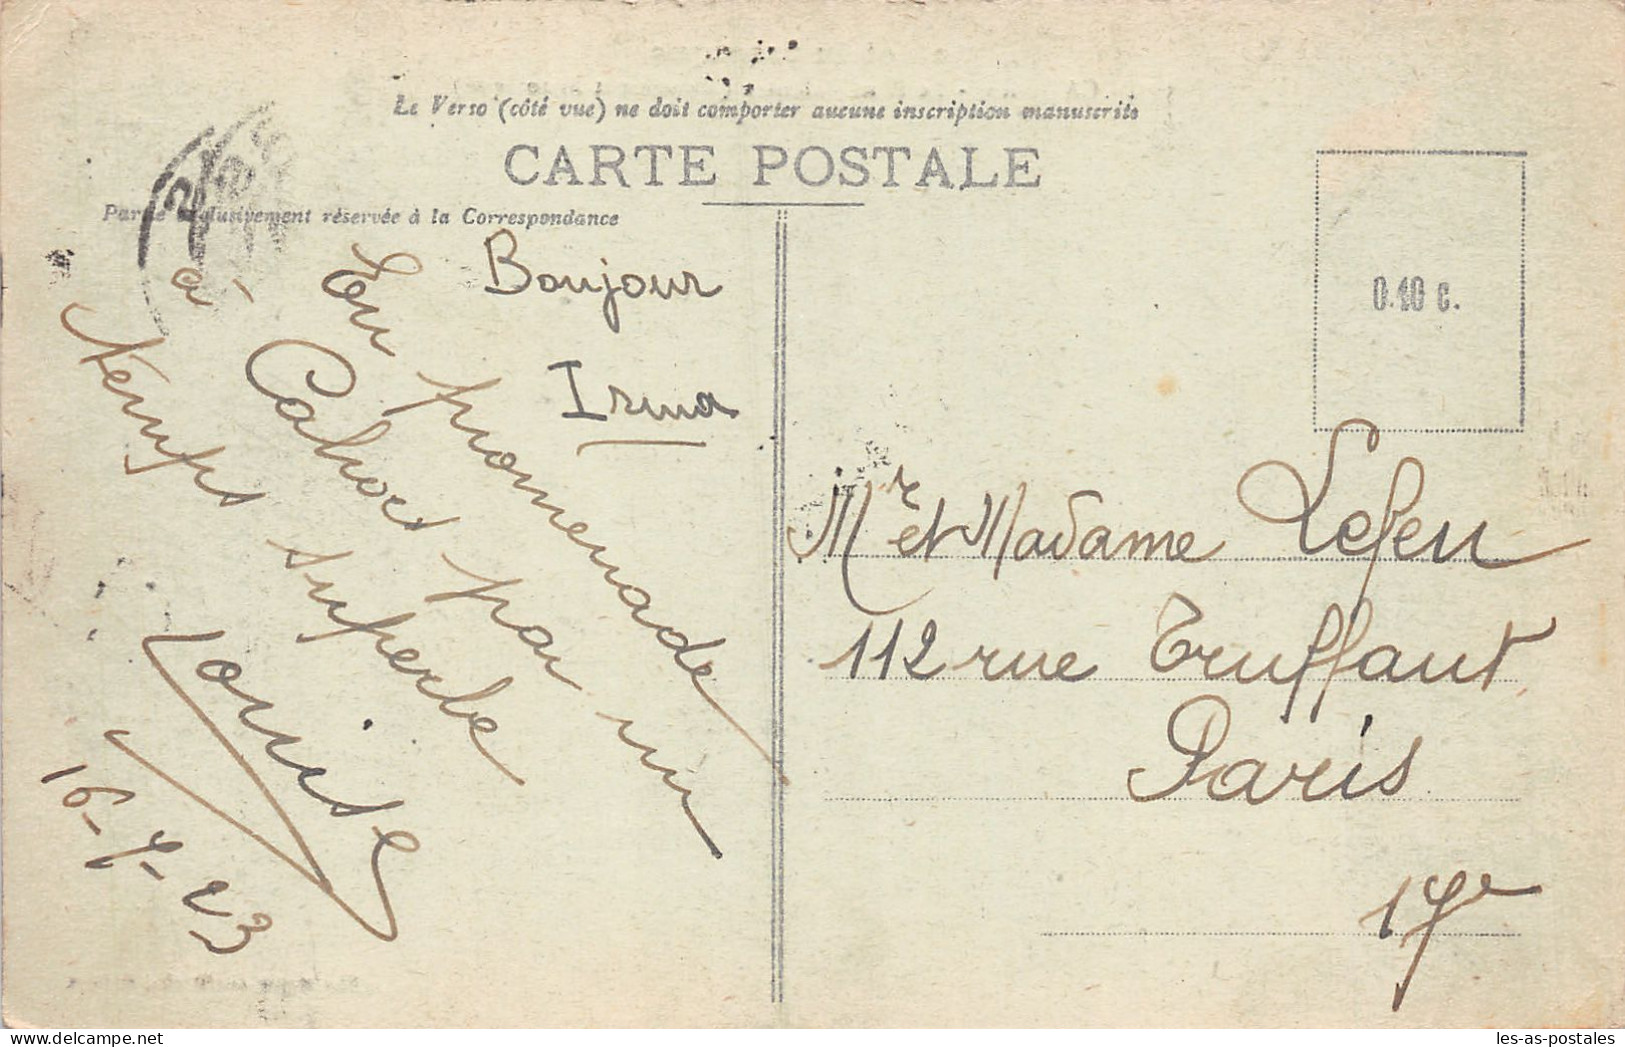 Le Verso (côté vue) ne doit comporter aucune inscription manuscrite
CARTE POSTALE
Partie exclusivement réservée à la Correspondance
Bonjour
Irma
En promenade
à Cahors par un
temps superbe
Louise
16-7-23
0.10 c.
Mr et Madame Lefeu
112 rue Truffaut
Paris
17e
delcampe.net
les-as-postales